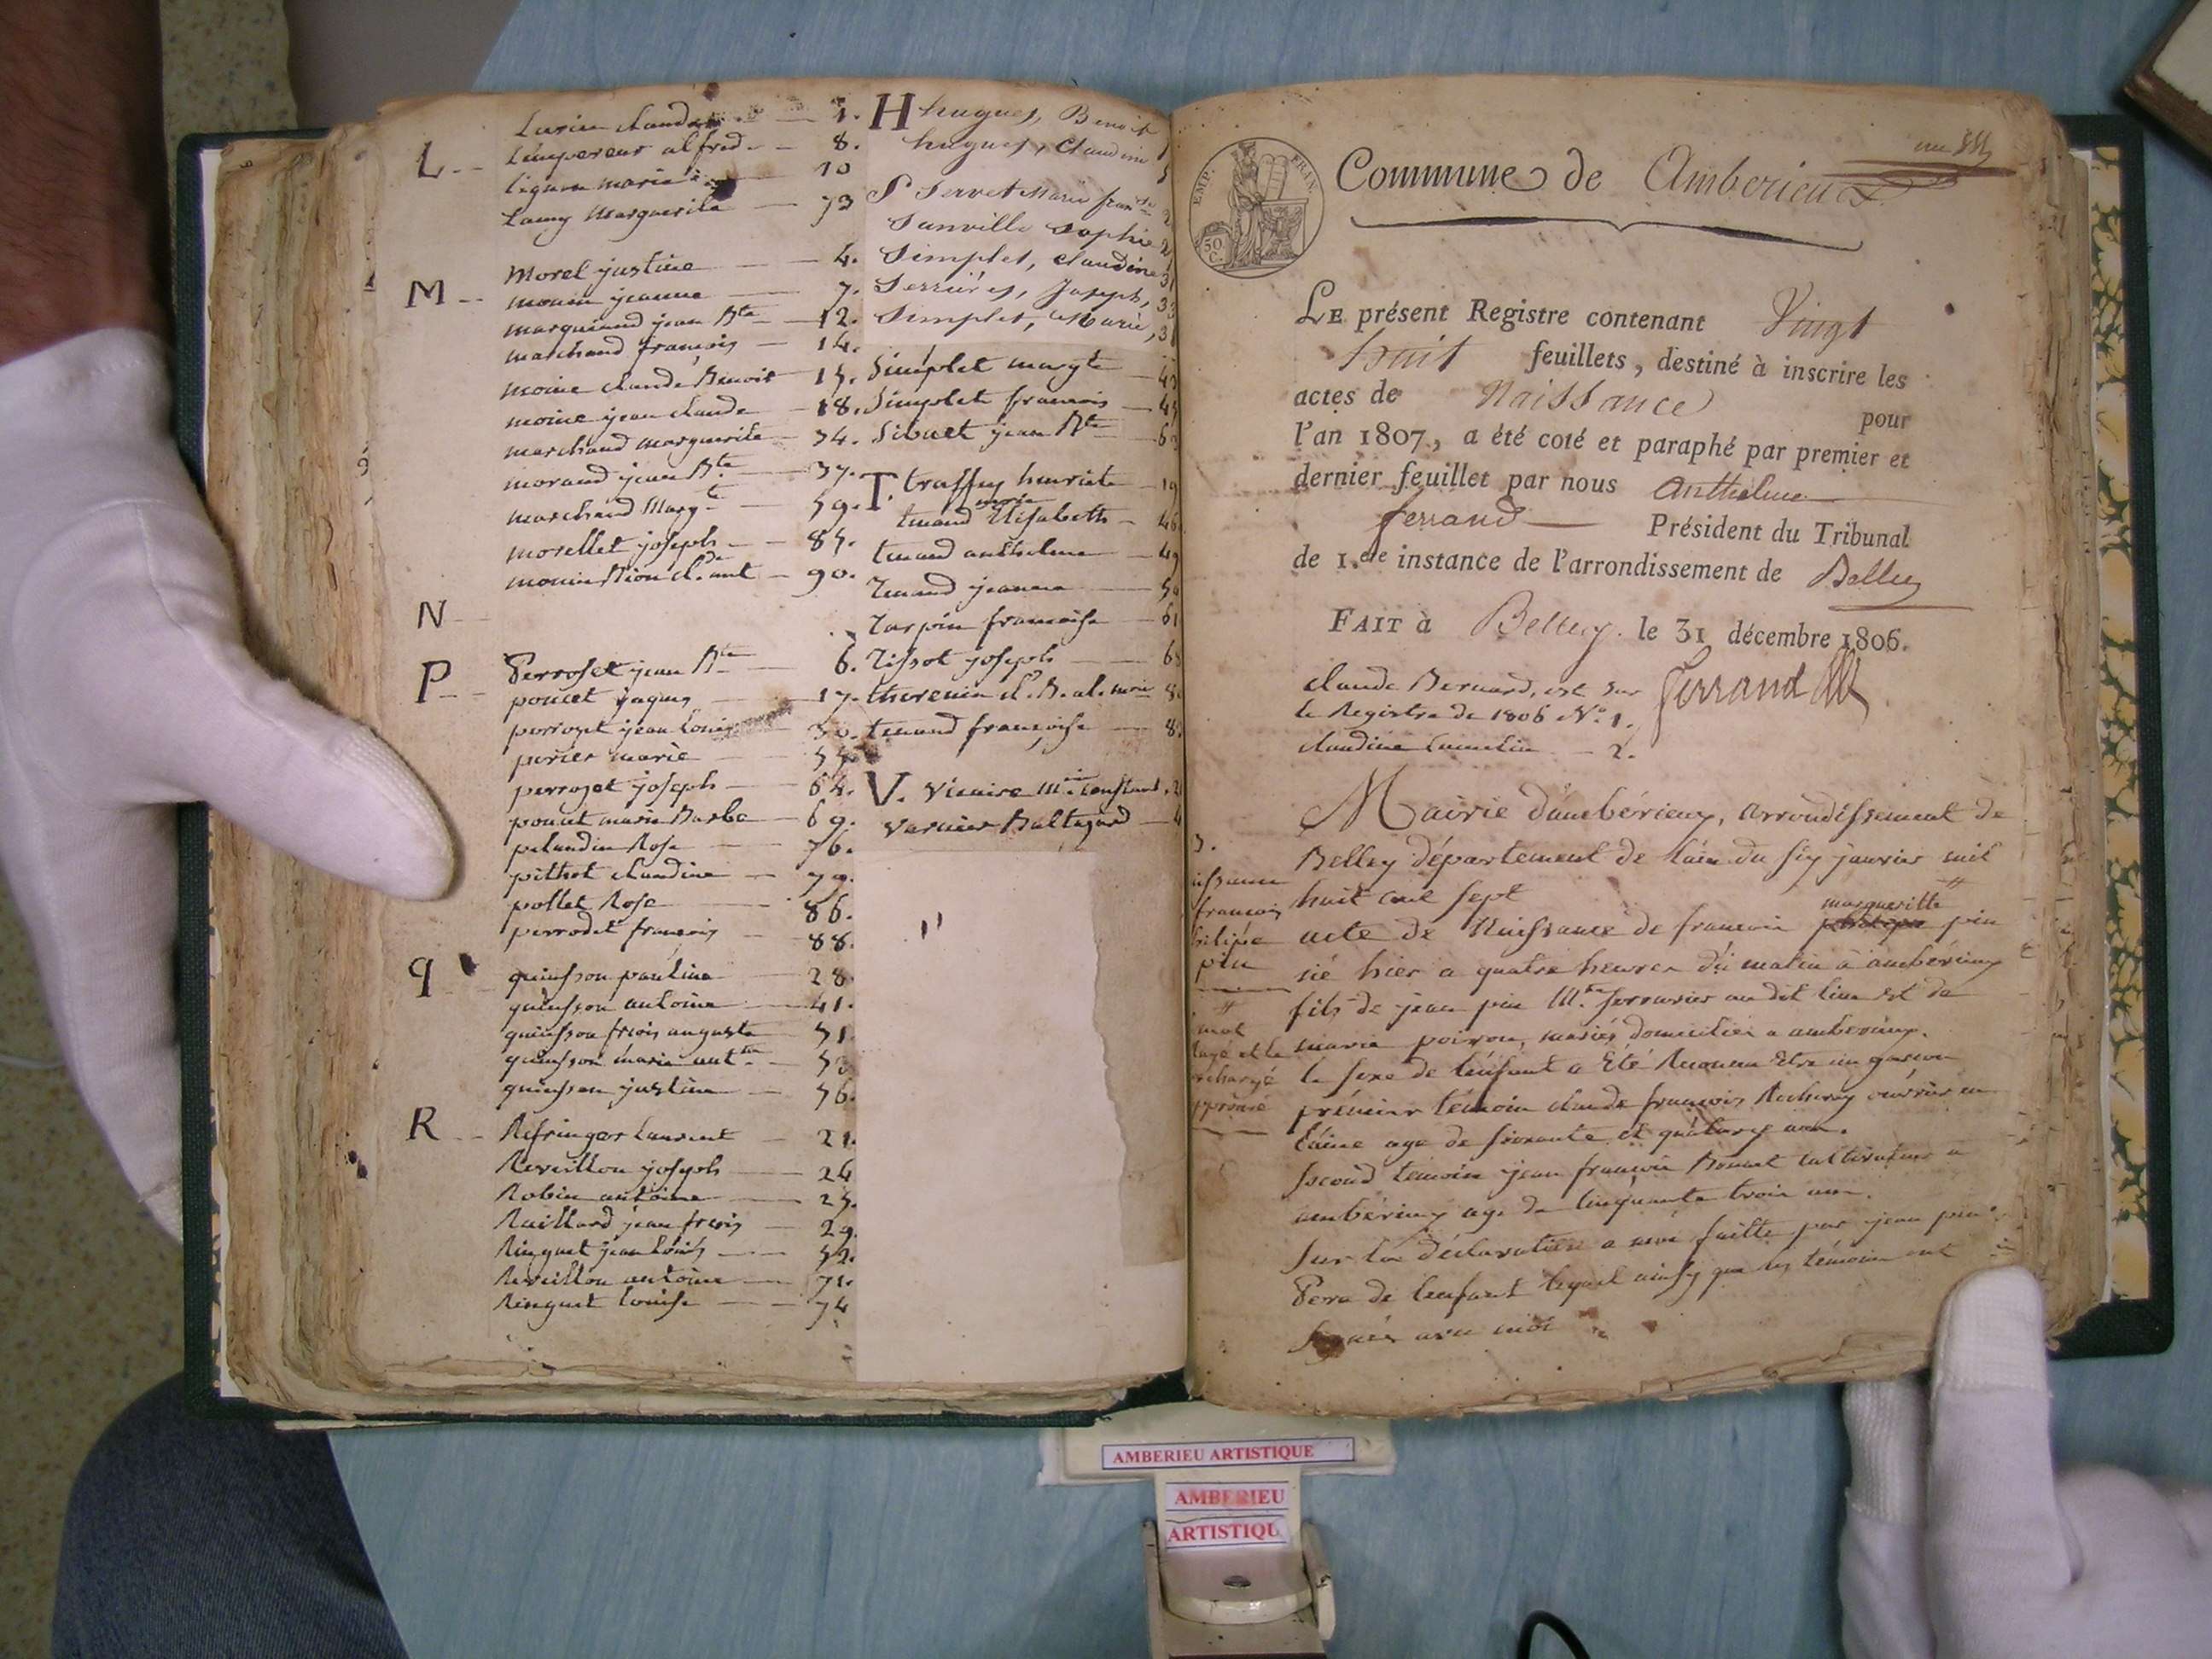 L
Lempereur alfred 8.
10
Lamy Marguerite 73
M
Morel justine 4.
monin jeanne 7.
marquiand jean Bte 12.
marchand françois 14.
moine claude Benoit 15.
moine jean claude 18.
marchand marguerite 34.
morand jean Bte 37.
marchand Margte 59.
morellet joseph 85.
90.
N
P
Perroset jean Bte 6.
poncet jaques 17.
perrozet jean Louis 30.
perier marie
perrozet joseph 64.
poncet marie Barbe 69.
pelandin Rose 76.
pithot claudine 79.
pollet Rose 86.
perrodet françois 88.
q
quinsson pauline 28
quinsson antoine 41.
quinsson frçois auguste 51
quinsson marie antte
quinsson justine 56.
R
Refringer Laurent 21.
Reveillon joseph 24
Robin antoine 25.
Raillard jean frçois 29.
Ringuet jean Louis 52.
Reveillon antoine 71.
Ringuet Louise 74
H hugues, Benoit
hugues, Claudine
S Servet Marie
Sanville Sophie
Simplet, Claudine
Serrières, Joseph,
Simplet, Marie,
Simplet margte
Simplet françois
Sibuet jean Bte
T. traffey henriete
marie
tenand Elisabeth
tenand anthelme
Tenand jeanne
Tarpin françoise
Tissot joseph
tenand françoise
V. Vicaire
Varnier Baltazard
EMP. FRAN.
50 C.
Commune de Amberieux
LE présent Registre contenant Vingt
huit feuillets, destiné à inscrire les
actes de Naissance pour
l'an 1807, a été coté et paraphé par premier et
dernier feuillet par nous Anthelme
ferrand Président du Tribunal
de 1.ere instance de l'arrondissement de Belley
FAIT à Belley. le 31 décembre 1806.
Claude Bernard, est sur
le Registre de 1806 No. 1.
ferrand
claudine 2.
Mairie d'ambérieux, arrondissement de
Belley département de l'ain du six janvier mil
huit cent sept
margueritte
acte de Naissance de francois pin
né hier a quatre heures du matin à ambérieux
fils de jean pin Mtre serrurier au dit lieu et de
marie poiron, mariés domiciliés a amberieux.
le sexe de l'enfant a Eté Reconnu Etre un garçon
prémier témoin claude françois ouvrier en
laine age de soixante et quatorze ans.
second temoin jean françois Bonnet cultivateur a
ambérieux age de cinquante trois ans.
sur la déclaration a moi faitte par jean pin
Pere de l'enfant lequel ainsy que les témoins ont
signés avec moi
3.
francois
pin
mot
AMBERIEU ARTISTIQUE
AMBERIEU
ARTISTIQU